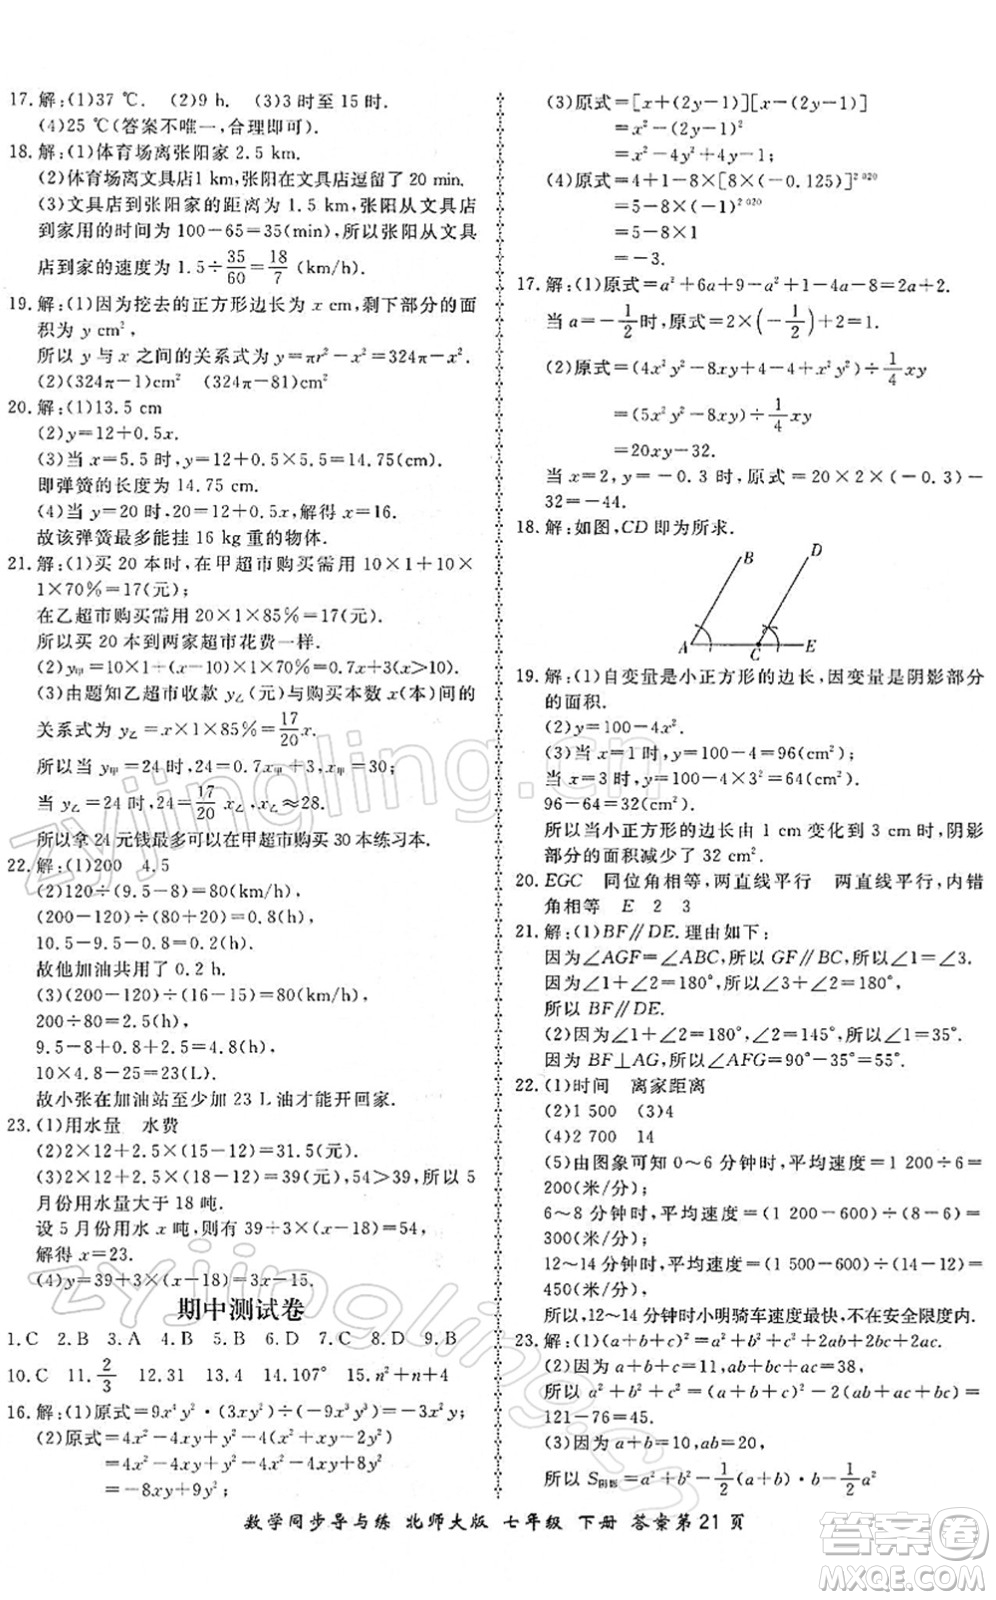 17. 解:(1)37 ℃. (2)9 h. (3)3 时至 15 时.
(4)25 ℃(答案不唯一,合理即可).
18. 解:(1)体育场离张阳家 2.5 km.
(2)体育场离文具店1 km,张阳在文具店逗留了 20 min.
(3)文具店到张阳家的距离为 1.5 km,张阳从文具
店到家用的时间为 100-65=35(min),所以张阳从文具
店到家的速度为 1.5÷35/60=18/7 (km/h).
19. 解:(1)因为挖去的正方形边长为 x cm,剩下部分的面
积为 y cm²,
所以 y 与 x 之间的关系式为 y=πr²-x²=324π-x².
(2)(324π-1)cm² (324π-81)cm²
20. 解:(1)13.5 cm
(2)y=12+0.5x.
(3)当 x=5.5 时,y=12+0.5×5.5=14.75(cm).
即弹簧的长度为 14.75 cm.
(4)当 y=20 时,20=12+0.5x,解得 x=16.
故该弹簧最多能挂 16 kg 重的物体.
21. 解:(1)买 20 本时,在甲超市购买需用 10×1+10×
1×70%=17(元);
在乙超市购买需用 20×1×85%=17(元).
所以买 20 本到两家超市花费一样.
(2)y甲=10×1+(x-10)×1×70%=0.7x+3(x>10).
(3)由题知乙超市收款 y乙(元)与购买本数 x(本)间的
关系式为 y乙=x×1×85%=17/20 x.
所以当 y甲=24 时,24=0.7x甲+3,x甲=30;
当 y乙=24 时,24=17/20 x乙,x乙≈28.
所以拿 24 元钱最多可以在甲超市购买 30 本练习本.
22. 解:(1)200 4.5
(2)120÷(9.5-8)=80(km/h),
(200-120)÷(80+20)=0.8(h),
10.5-9.5-0.8=0.2(h).
故他加油共用了 0.2 h.
(3)(200-120)÷(16-15)=80(km/h),
200÷80=2.5(h),
9.5-8+0.8+2.5=4.8(h),
10×4.8-25=23(L).
故小张在加油站至少加 23 L 油才能开回家.
23. (1)用水量 水费
(2)2×12+2.5×(15-12)=31.5(元).
(3)2×12+2.5×(18-12)=39(元),54>39,所以 5
月份用水量大于 18 吨.
设 5 月份用水 x 吨,则有 39+3(x-18)=54,
解得 x=23.
(4)y=39+3×(x-18)=3x-15.
期中测试卷
1. C 2. B 3. A 4. B 5. B 6. D 7. C 8. D 9. B
10. C 11. 2/3 12. 31 13. 4 14. 107° 15. n²+n+4
16. 解:(1)原式=9x⁴y²·(3xy²)÷(-9x³y³)=-3x²y;
(2)原式=4x²-4xy+y²-(4x²+4xy-8y²)
=4x²-4xy+y²-4x²-4xy+8y²
=-8xy+9y²;
(3)原式=[x+(2y-1)][x-(2y-1)]
=x²-(2y-1)²
=x²-4y²+4y-1;
(4)原式=4+1-8×[8×(-0.125)]²⁰²⁰
=5-8×(-1)²⁰²⁰
=5-8
=-3.
17. 解:(1)原式=a²+6a+9-a²+1-4a-8=2a+2.
当 a=-1/2时,原式=2×(-1/2)+2=1.
(2)原式=(4x²y²-8xy+4-4+x²y²)÷1/4 xy
=(5x²y²-8xy)÷1/4 xy
=20xy-32.
当 x=2,y=-0.3 时,原式=20×2×(-0.3)-
32=-44.
18. 解:如图,CD 即为所求.
B D
A C E
19. 解:(1)自变量是小正方形的边长,因变量是阴影部分
的面积.
(2)y=100-4x².
(3)当 x=1 时,y=100-4=96(cm²).
当 x=3 时,y=100-4×3²=64(cm²).
96-64=32(cm²).
所以当小正方形的边长由 1 cm 变化到 3 cm 时,阴影
部分的面积减少了 32 cm².
20. EGC 同位角相等,两直线平行 两直线平行,内错
角相等 E 2 3
21. 解:(1)BF∥DE.理由如下:
因为∠AGF=∠ABC,所以 GF∥BC,所以∠1=∠3.
因为∠1+∠2=180°,所以∠3+∠2=180°,
所以 BF∥DE.
(2)因为∠1+∠2=180°,∠2=145°,所以∠1=35°.
因为 BF⊥AG,所以∠AFG=90°-35°=55°.
22. (1)时间 离家距离
(2)1 500 (3)4
(4)2 700 14
(5)由图象可知 0~6 分钟时,平均速度=1 200÷6=
200(米/分);
6~8 分钟时,平均速度=(1 200-600)÷(8-6)=
300(米/分);
12~14 分钟时,平均速度=(1 500-600)÷(14-12)=
450(米/分),
所以,12~14 分钟时小明骑车速度最快,不在安全限度内.
23. 解:(1)(a+b+c)²=a²+b²+c²+2ab+2bc+2ac.
(2)因为 a+b+c=11,ab+bc+ac=38,
所以 a²+b²+c²=(a+b+c)²-2(ab+ac+bc)=
121-76=45.
(3)因为 a+b=10,ab=20,
所以 S阴影=a²+b²-1/2(a+b)·b-1/2a²
数学同步导与练 北师大版 七年级 下册 答案第21页
zyjingling.cn
zyjingling.cn
答案圈
MXQE.COM